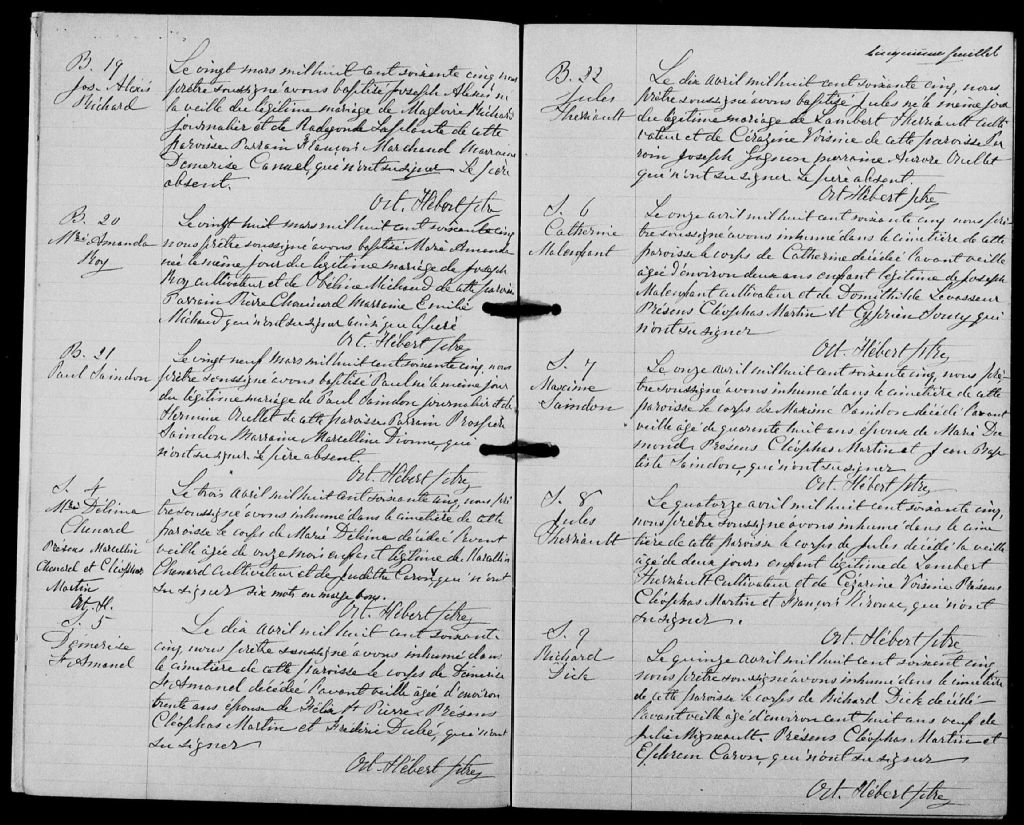 B. 19
Jos. Alexis
Richard
Le vingt mars mil huit cent soixante cinq nous
prêtre soussigné avons baptisé Joseph Alexis né
la veille du légitime mariage de Magloire Richard
journalier et de Radegonde Laplante de cette
paroisse Parrain François Marchand Marraine
Démerise Canuel, qui n'ont su signer. Le père
absent.
Oct. Hébert ptre
B. 20
Mrie Amanda
Roy
Le vingt huit mars mil huit cent soixante cinq
nous prêtre soussigné avons baptisé Marie Amanda
née le même jour du légitime mariage de Joseph
Roy cultivateur et de Obéline Michaud de cette paroisse
Parrain Pierre Chouinard Marraine Emilie
Michaud qui n'ont su signer ainsi que le père
Oct. Hébert ptre
B. 21
Paul Saindon
Le vingt neuf mars mil huit cent soixante cinq, nous
prêtre soussigné avons baptisé Paul né le même jour
du légitime mariage de Paul Saindon journalier et de
Hermine Ouellet de cette paroisse Parrain Prospère
Saindon Marraine Marcelline Dionne qui
n'ont su signer. Le père absent.
Oct. Hébert ptre
S. 4
Mrie Délima
Chenard
Présens Marcellin
Chenard et Cléophas
Martin
Oct. H.
Le trois avril mil huit cent soixante cinq, nous prê
tre soussigné avons inhumé dans le cimetière de cette
paroisse le corps de Marie Délima décédée l'avant
veille agée de onze mois enfant légitime de Marcellin
Chenard cultivateur et de Judithe Caron, qui n'ont
su signer six mots en marge bons.
Oct. Hébert ptre
S. 5
Démerise
St Amand
Le dix avril mil huit cent soixante
cinq, nous prêtre soussigné avons inhumé dans
le cimetière de cette paroisse le corps de Démerise
St Amand décédée l'avant veille agée d'environ
trente ans épouse de Félix St Pierre. Présens
Cléophas Martin et Frédéric Dubé, qui n'ont
su signer
Oct. Hébert ptre
Cinquième feuillet
B. 22
Jules
Therriault
Le dix avril mil huit cent soixante cinq, nous,
prêtre soussigné avons baptisé Jules né le même jour
du légitime mariage de Lambert Therriault culti-
vateur et de Cézarine Voisine de cette paroisse Par
rain Joseph Gagnon marraine Aurore Ouellet
qui n'ont su signer Le père absent.
Oct Hébert ptre
S. 6
Catherine
Malenfant
Le onze avril mil huit cent soixante cinq nous prê
tre soussigné avons inhumé dans le cimetière de cette
paroisse le corps de Catherine décédée l'avant veille
agée d'environ deux ans enfant légitime de Joseph
Malenfant cultivateur et de Domithilde Levasseur
Présens Cléophas Martin et Cyprien Soucy qui
n'ont su signer
Oct. Hébert ptre
S. 7
Maxime
Saindon
Le onze avril mil huit cent soixante cinq, nous prê
tre soussigné avons inhumé dans le cimetière de cette
paroisse le corps de Maxime Saindon décédé l'avant
veille agé de quarente huit ans époux de Marie Du
mond. Présens Cléophas Martin et Jean Bap
tiste Saindon, qui n'ont su signer
Oct. Hébert ptre
S. 8
Jules
Therriault
Le quatorze avril mil huit cent soixante cinq,
nous prêtre soussigné avons inhumé dans le cime
tière de cette paroisse le corps de Jules décédé la veille
agé de deux jours enfant légitime de Lambert
Therriault cultivateur et de Cézarine Voisine Présens
Cléophas Martin et François Kirouac, qui n'ont
su signer.
Oct. Hébert ptre
S. 9
Richard
Dick
Le quinze avril mil huit cent soixante cinq
nous prêtre soussigné avons inhumé dans le cimetière
de cette paroisse le corps de Richard Dick décédé
l'avant veille agé d'environ cent huit ans veuf de
Julie Mignault. Présens Cléophas Martin et
Ephrem Caron, qui n'ont su signer
Oct. Hébert ptre